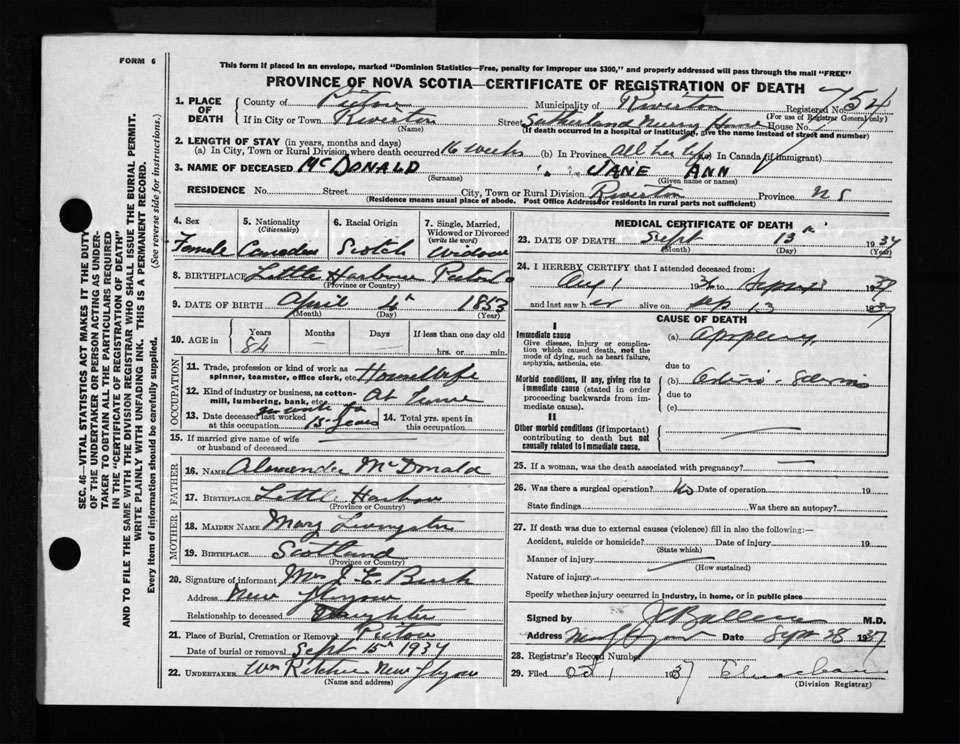 FORM 6
This form if placed in an envelope, marked "Dominion Statistics—Free, penalty for improper use $300," and properly addressed will pass through the mail "FREE"
PROVINCE OF NOVA SCOTIA—CERTIFICATE OF REGISTRATION OF DEATH
1. PLACE OF DEATH
County of Pictou Municipality of Riverton Registered No. 754
(For use of Registrar General only)
If in City or Town Riverton Street Sutherland Nursing Home House No.
(Name) (If death occurred in a hospital or institution, give the name instead of street and number)
2. LENGTH OF STAY (in years, months and days)
(a) In City, Town or Rural Division where death occurred 16 weeks (b) In Province All her life (c) In Canada (if immigrant)
3. NAME OF DECEASED McDONALD JANE ANN
(Surname) (Given name or names)
RESIDENCE No. Street City, Town or Rural Division Riverton Province N S
(Residence means usual place of abode. Post Office Address for residents in rural parts not sufficient)
4. Sex 5. Nationality (Citizenship) 6. Racial Origin 7. Single, Married, Widowed or Divorced (write the word)
Female Canadian Scotch widow
8. BIRTHPLACE Little Harbour Pictou Co
(Province or Country)
9. DATE OF BIRTH April 4th 1853
(Month) (Day) (Year)
10. AGE in Years Months Days If less than one day old
84 hrs. or min.
OCCUPATION
11. Trade, profession or kind of work as spinner, teamster, office clerk, etc. Housewife
12. Kind of industry or business, as cotton-mill, lumbering, bank, etc. At home
13. Date deceased last worked at this occupation no work for 15 years
14. Total yrs. spent in this occupation
15. If married give name of wife or husband of deceased
FATHER
16. NAME Alexander McDonald
17. BIRTHPLACE Little Harbour
(Province or Country)
MOTHER
18. MAIDEN NAME Mary
19. BIRTHPLACE Scotland
(Province or Country)
20. Signature of informant Mrs J. C.
Address New Glasgow
Relationship to deceased Daughter
21. Place of Burial, Cremation or Removal Pictou
Date of burial or removal Sept 15th 1937
22. UNDERTAKER Wm Ritchie New Glasgow
(Name and address)
MEDICAL CERTIFICATE OF DEATH
23. DATE OF DEATH Sept 13th 1937
(Month) (Day) (Year)
24. I HEREBY CERTIFY that I attended deceased from:
Aug 1 1936 to Sept 13 1937
and last saw her alive on Sep 13 1937
CAUSE OF DEATH
I
Immediate cause
Give disease, injury or complication which caused death, not the mode of dying, such as heart failure, asphyxia, asthenia, etc.
(a) Apoplexy
due to
Morbid conditions, if any, giving rise to immediate cause (stated in order proceeding backwards from immediate cause).
(b)
due to
(c)
II
Other morbid conditions (if important) contributing to death but not causally related to immediate cause.
25. If a woman, was the death associated with pregnancy?
26. Was there a surgical operation? No Date of operation 19
State findings Was there an autopsy?
27. If death was due to external causes (violence) fill in also the following:—
Accident, suicide or homicide? Date of injury 19
(State which)
Manner of injury
(How sustained)
Nature of injury
Specify whether injury occurred in industry, in home, or in public place
Signed by M.D.
Address New Glasgow Date Sept 28 1937
28. Registrar's Record Number
29. Filed Oct 1 1937
(Division Registrar)
SEC. 46—VITAL STATISTICS ACT MAKES IT THE DUTY
OF THE UNDERTAKER OR PERSON ACTING AS UNDER-
TAKER TO OBTAIN ALL THE PARTICULARS REQUIRED
IN THE "CERTIFICATE OF REGISTRATION OF DEATH"
AND TO FILE THE SAME WITH THE DIVISION REGISTRAR WHO SHALL ISSUE THE BURIAL PERMIT.
WRITE PLAINLY WITH UNFADING INK. THIS IS A PERMANENT RECORD.
Every item of information should be carefully supplied. (See reverse side for instructions.)